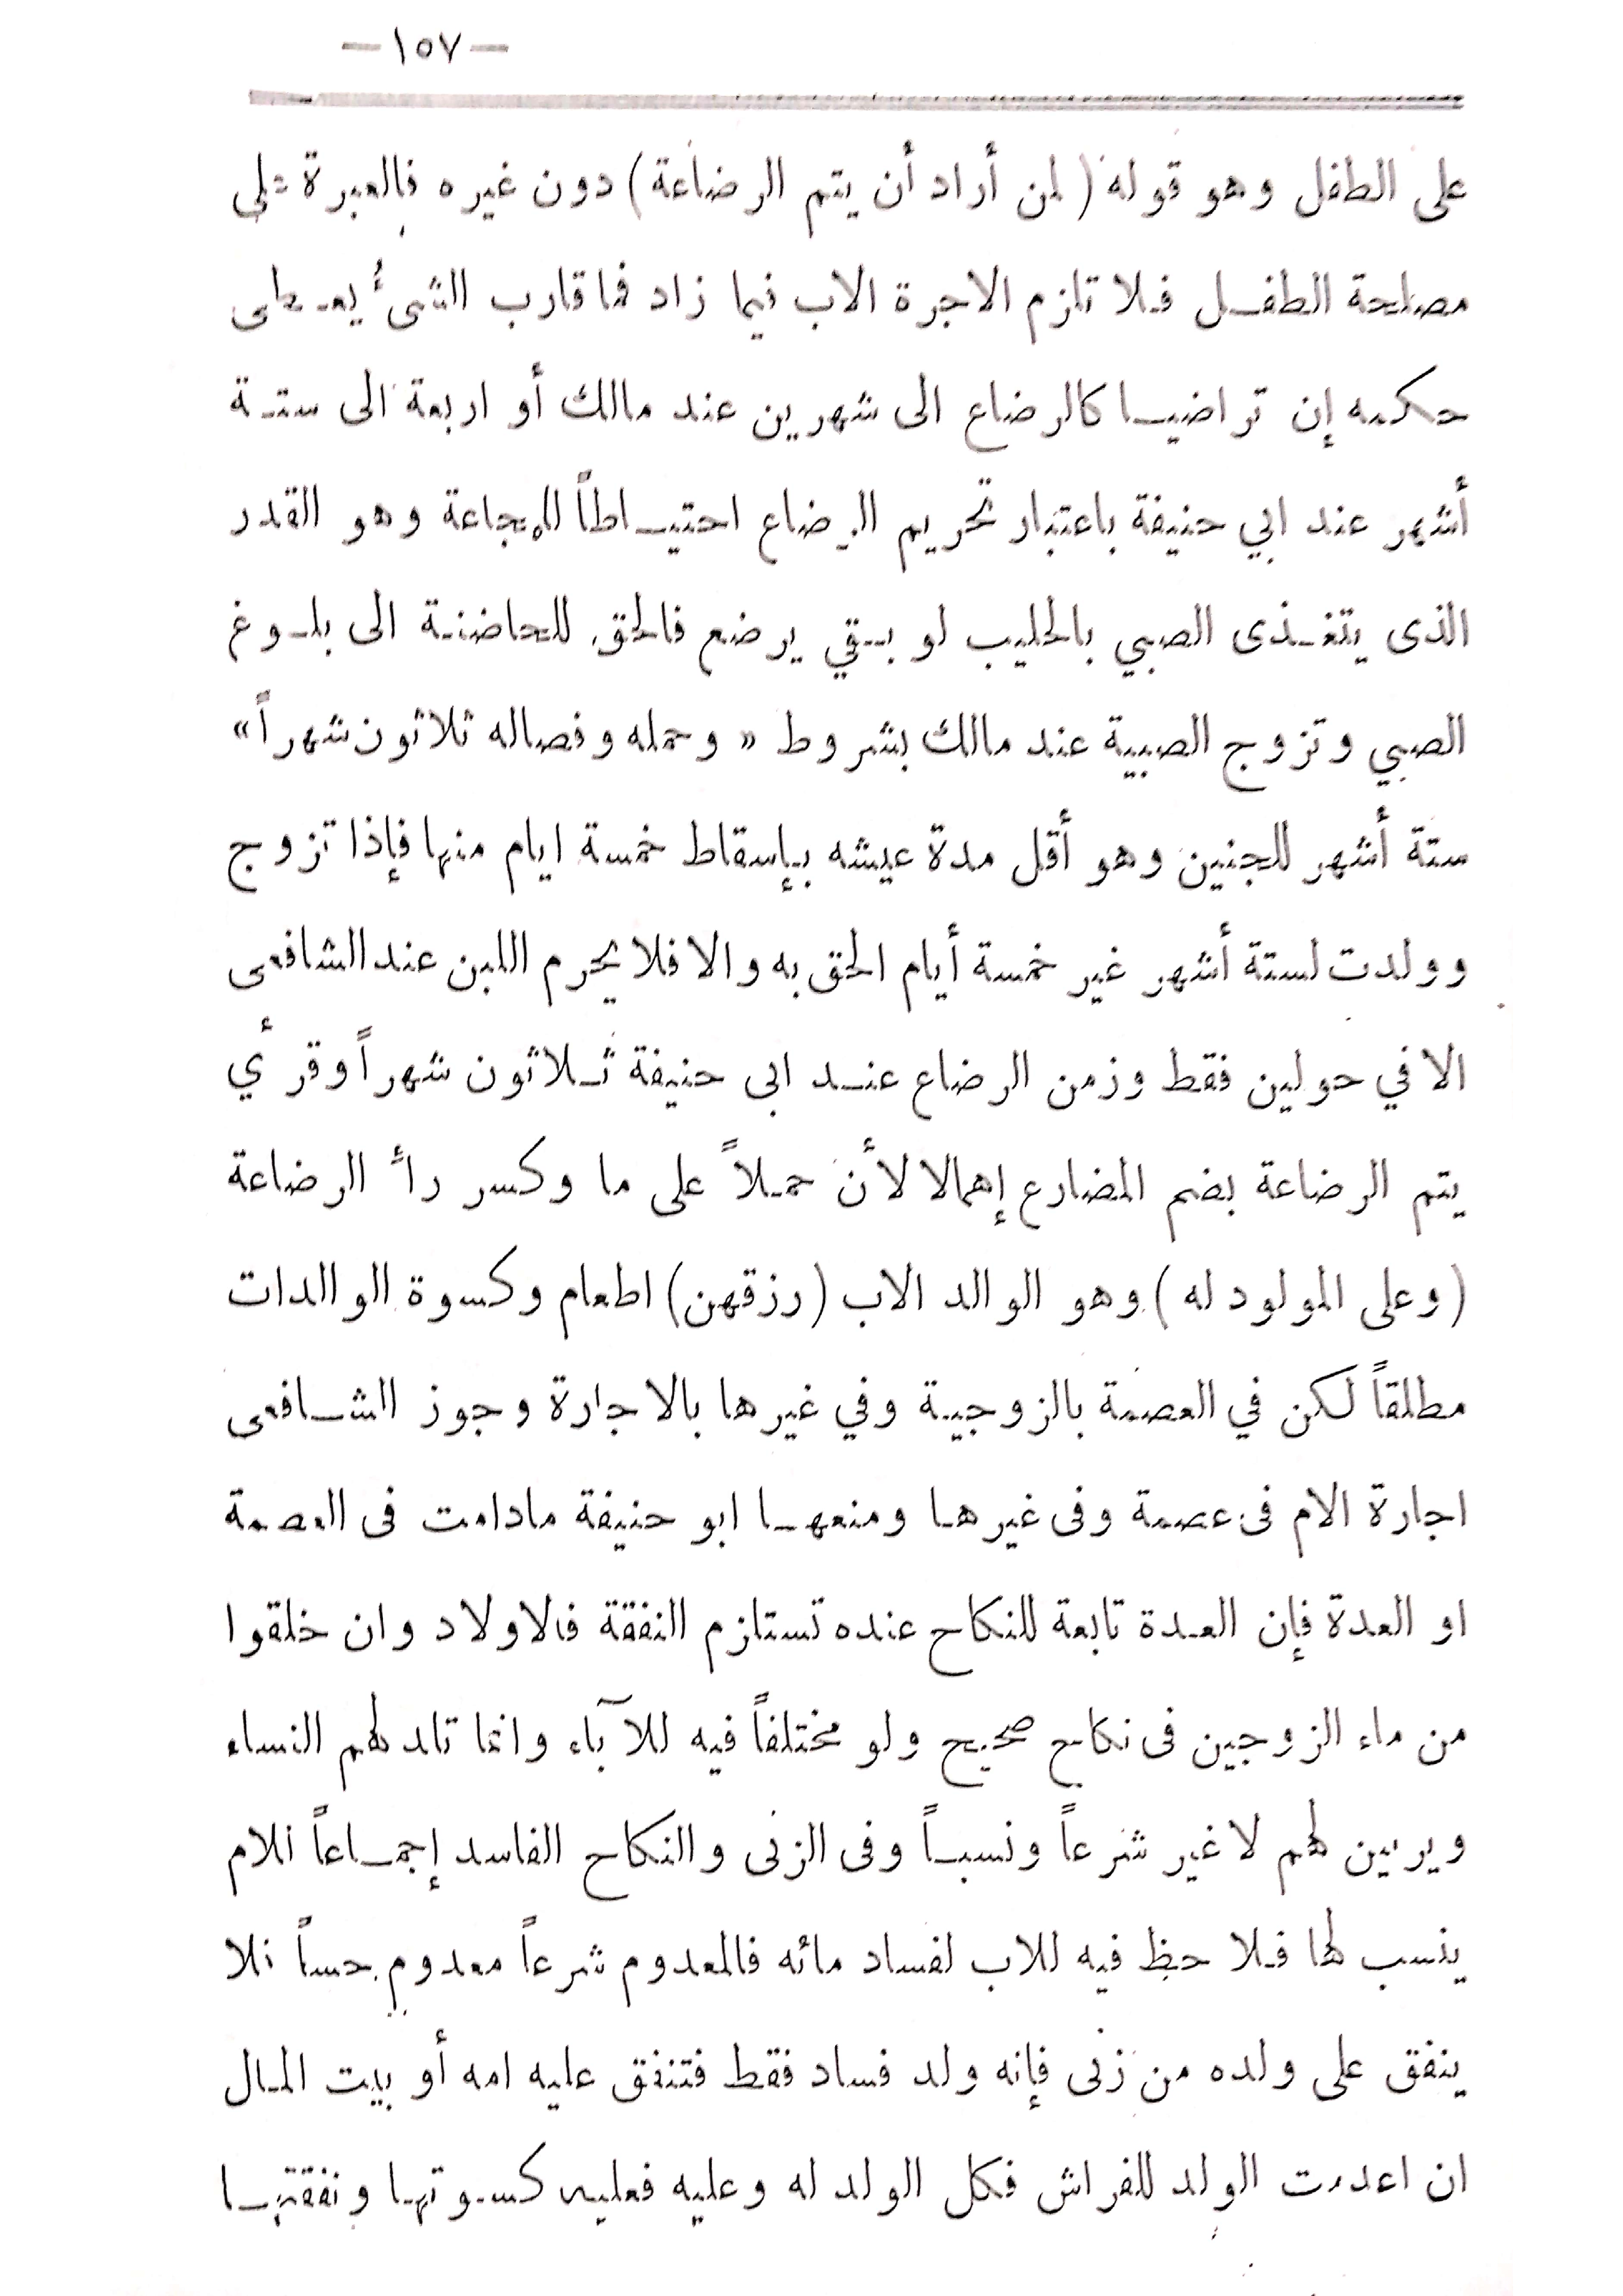 —١٥٧—
على الطفل وهو قوله (لمن أراد أن يتم الرضاعة) دون غيره فالعبرة على
مصلحة الطفل فلا تلزم الاجرة الاب فيما زاد فما قارب الشىءُ يعطى
حكمه إن تراضيا كالرضاع الى شهرين عند مالك أو اربعة الى ستة
أشهر عند ابي حنيفة باعتبار تحريم الرضاع احتياطاً للمجاعة وهو القدر
الذى يتغذى الصبي بالحليب لو بقي يرضع فالحق للحاضنة الى بلوغ
الصبي وتزوج الصبية عند مالك بشروط « وحمله وفصاله ثلاثون شهراً »
ستة أشهر للجنين وهو أقل مدة عيشه بإسقاط خمسة ايام منها فإذا تزوج
وولدت لستة أشهر غير خمسة أيام الحق به والا فلا يحرم اللبن عند الشافعى
الا في حولين فقط وزمن الرضاع عند ابى حنيفة ثلاثون شهراً وقرأي
يتم الرضاعة بضم المضارع إهمالا لأن حملاً على ما وكسر رأ الرضاعة
(وعلى المولود له) وهو الوالد الاب (رزقهن) اطعام وكسوة الوالدات
مطلقاً لكن في العصمة بالزوجية وفي غيرها بالاجارة وجوز الشافعى
اجارة الام فى عصمة وفى غيرها ومنعها ابو حنيفة مادامت فى العصمة
او العدة فإن العدة تابعة للنكاح عنده تستلزم النفقة فالاولاد وان خلقوا
من ماء الزوجين فى نكاح صحيح ولو مختلفاً فيه للآباء وانما تلد لهم النساء
ويربين لهم لا غير شرعاً ونسباً وفى الزنى والنكاح الفاسد إجماعاً للام
ينسب لها فلا حظ فيه للاب لفساد مائه فالمعدوم شرعاً معدوم حساً فلا
ينفق على ولده من زنى فإنه ولد فساد فقط فتنفق عليه امه أو بيت المال
ان اعدمت الولد للفراش فكل الولد له وعليه فعليه كسوتها ونفقتها